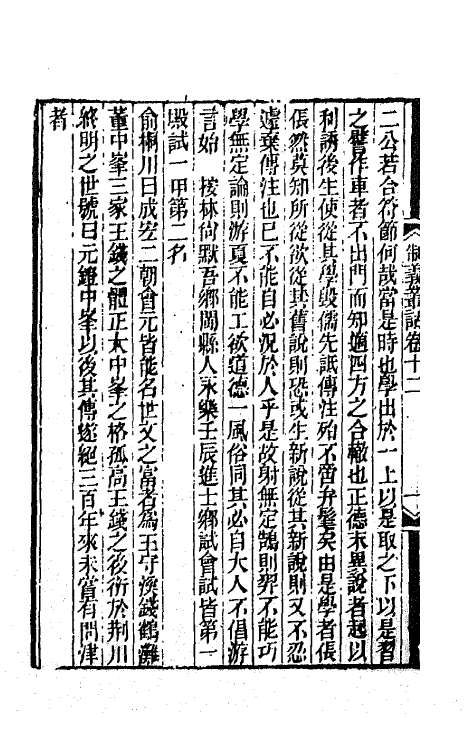 制義叢話卷十二
二公若合符節何哉當是時也學出於一上以是取之下以是習
之譬作車者不出門而知適四方之合轍也正德末異說者起以
利誘後生使從其學毀儒先詆傳注殆不啻弁髦矣由是學者倀
倀然莫知所從欲從其舊說則恐或主新說從其新說則又不忍
遽棄傳注也已不能自必況於人乎是故射無定鵠則羿不能巧
學無定論則游夏不能工欲道德一風俗同其必自大人不倡游
言始 按林尚默吾鄉閩縣人永樂壬辰進士鄉試會試皆第一
殿試一甲第二名
俞桐川曰成宏二朝會元皆能名世文之富者為王守溪錢鶴灘
董中峯三家王錢之體正大中峯之格孤高王錢之後衍於荆川
終明之世號曰元鐙中峯以後其傳遂絕三百年來未嘗有問津
者